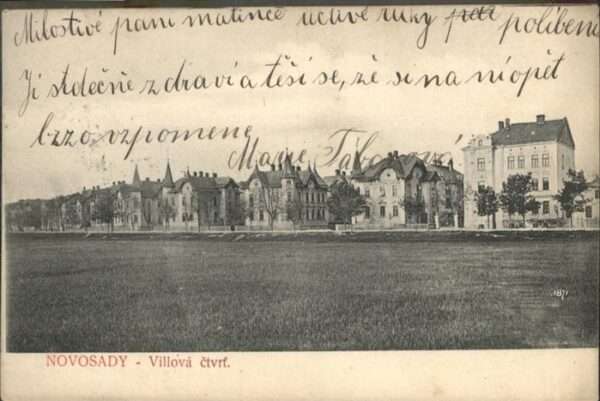 Milostivé paní matince uctivé ruky políbení
Jí srdečně zdraví a těší se, zè si na ni opět
bzzo vzpomene
Marie Táborová
1871
NOVOSADY - Villová čtvrť.